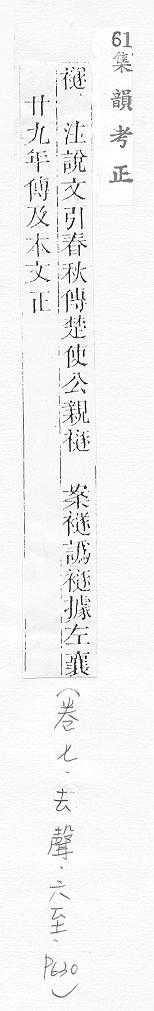 61集韻考正
襚 注說文引春秋傳楚使公親襚 案襚譌禭據左襄
廿九年傳及本文正
(卷七.去聲.六至.P630)